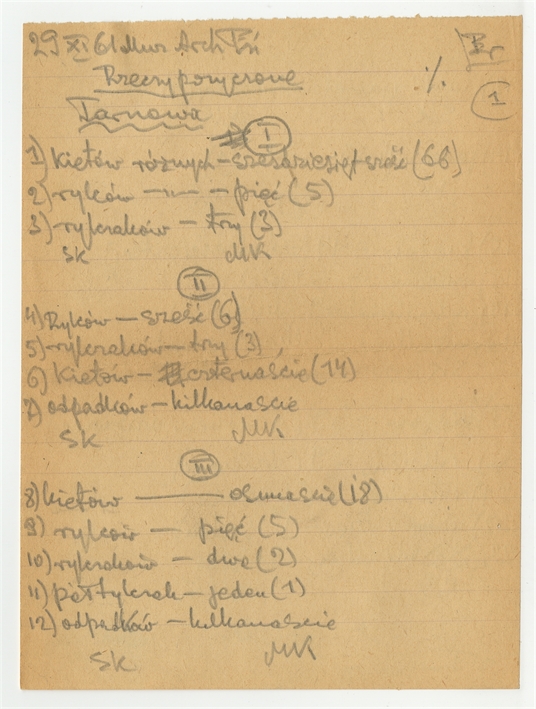 29 XI 61 Muz Arch Kr
Br
Rzeczy pożyczone
%
1
Tarnowa
I
1) kiełów różnych – sześćdziesiąt sześć (66)
2) ryłków –"– – pięć (5)
3) rylczaków – trzy (3)
SK MK
II
4) Ryłków – sześć (6)
5) rylczaków – trzy (3)
6) Kiełów – czternaście (14)
7) odpadków – kilkanaście
SK MK
III
8) kiełów – osiemnaście (18)
9) ryłków – pięć (5)
10) rylczaków – dwa (2)
11) półtylczak – jeden (1)
12) odpadków – kilkanaście
SK MK